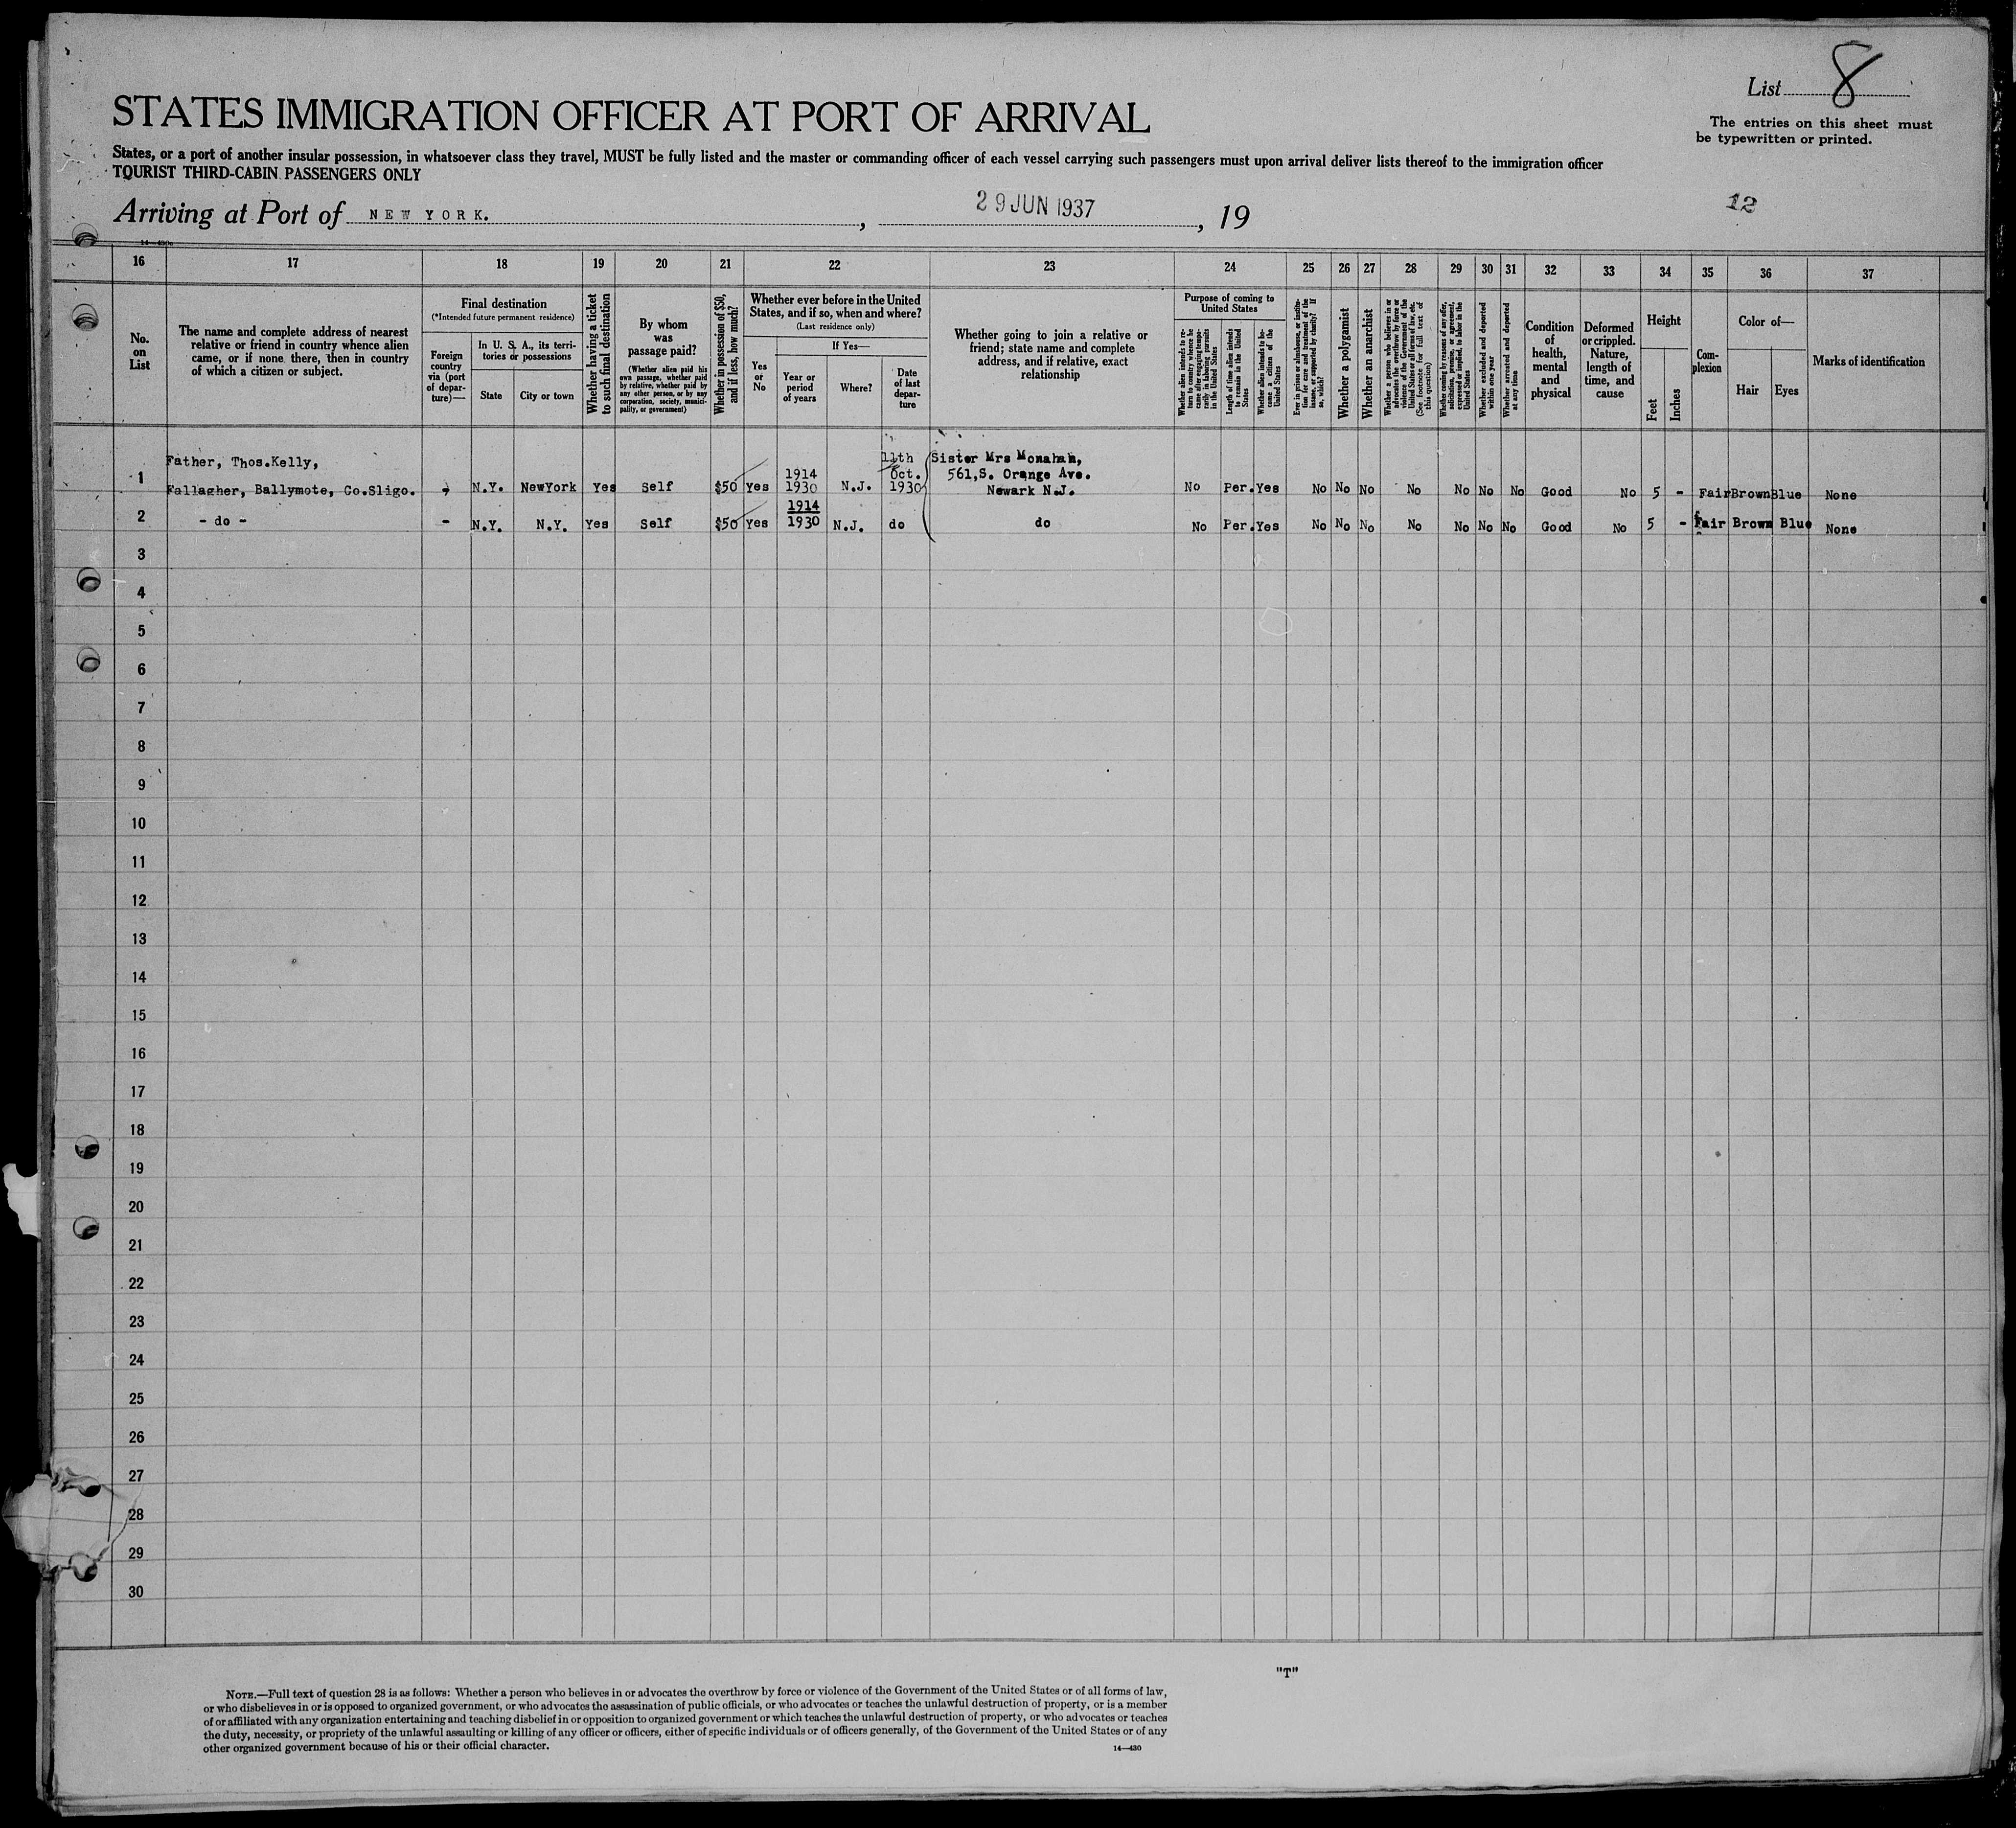 List 8
The entries on this sheet must
be typewritten or printed.
STATES IMMIGRATION OFFICER AT PORT OF ARRIVAL
States, or a port of another insular possession, in whatsoever class they travel, MUST be fully listed and the master or commanding officer of each vessel carrying such passengers must upon arrival deliver lists thereof to the immigration officer
TOURIST THIRD-CABIN PASSENGERS ONLY
Arriving at Port of NEW YORK. , 29 JUN 1937 , 19
12
16 17 18 19 20 21 22 23 24 25 26 27 28 29 30 31 32 33 34 35 36 37
No.
on
List
The name and complete address of nearest
relative or friend in country whence alien
came, or if none there, then in country
of which a citizen or subject.
Final destination
(*Intended future permanent residence)
Foreign
country
via (port
of depar-
ture)—
In U. S. A., its terri-
tories or possessions
State
City or town
Whether having a ticket
to such final destination
By whom
was
passage paid?
(Whether alien paid his
own passage, whether paid
by relative, whether paid by
any other person, or by any
corporation, society, munici-
pality, or government)
Whether in possession of $50,
and if less, how much?
Whether ever before in the United
States, and if so, when and where?
(Last residence only)
Yes
or
No
If Yes—
Year or
period
of years
Where?
Date
of last
depar-
ture
Whether going to join a relative or
friend; state name and complete
address, and if relative, exact
relationship
Purpose of coming to
United States
Whether alien intends to re-
turn to country whence he
came after engaging tempo-
rarily in laboring pursuits
in the United States
Length of time alien intends
to remain in the United
States
Whether alien intends to be-
come a citizen of the
United States
Ever in prison or almshouse, or institu-
tion for care and treatment of the
insane, or supported by charity? If
so, which?
Whether a polygamist
Whether an anarchist
Whether a person who believes in or
advocates the overthrow by force or
violence of the Government of the
United States or all forms of law, etc.
(See footnote for full text of
this question)
Whether coming by reasons of any offer,
solicitation, promise, or agreement,
expressed or implied, to labor in the
United States
Whether excluded and deported
within one year
Whether arrested and deported
at any time
Condition
of
health,
mental
and
physical
Deformed
or crippled.
Nature,
length of
time, and
cause
Height
Feet
Inches
Com-
plexion
Color of—
Hair
Eyes
Marks of identification
Father, Thos.Kelly, 11th Sister Mrs Monahan,
1 1914 Oct. 561,S. Orange Ave.
Fallagher, Ballymote, Co.Sligo. - N.Y. NewYork Yes Self $50 Yes 1930 N.J. 1930 Newark N.J. No Per. Yes No No No No No No No Good No 5 - Fair Brown Blue None
1914
2 - do - - N.Y. N.Y. Yes Self $50 Yes 1930 N.J. do do No Per. Yes No No No No No No No Good No 5 - Fair Brown Blue None
3
4
5
6
7
8
9
10
11
12
13
14
15
16
17
18
19
20
21
22
23
24
25
26
27
28
29
30
"T"
NOTE.—Full text of question 28 is as follows: Whether a person who believes in or advocates the overthrow by force or violence of the Government of the United States or of all forms of law,
or who disbelieves in or is opposed to organized government, or who advocates the assassination of public officials, or who advocates or teaches the unlawful destruction of property, or is a member
of or affiliated with any organization entertaining and teaching disbelief in or opposition to organized government or which teaches the unlawful destruction of property, or who advocates or teaches
the duty, necessity, or propriety of the unlawful assaulting or killing of any officer or officers, either of specific individuals or of officers generally, of the Government of the United States or of any
other organized government because of his or their official character.
14—430